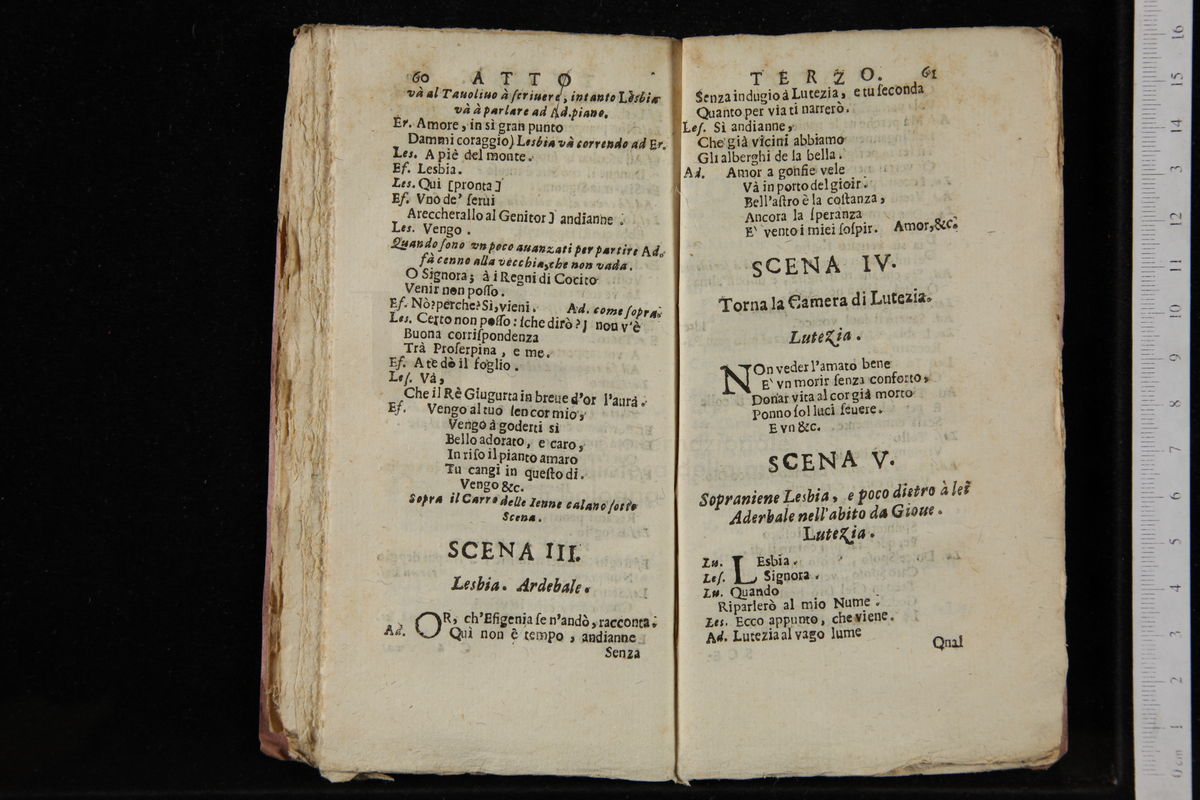 60 ATTO
và al Tauolino à ſcriuere, intanto Lesbia
và à parlare ad Ad. piano.
Er. Amore, in sì gran punto
Dammi coraggio) Lesbia và correndo ad Er.
Les. A piè del monte.
Ef. Lesbia.
Les. Qui [pronta]
Ef. Vnò de' ſerui
Areccherallo al Genitor] andianne.
Les. Vengo.
Quando ſono vn poco auanzati per partire Ad.
fà cenno alla vecchia, che non vada.
O Signora; à i Regni di Cocito
Venir non poſſo.
Ef. Nò? perche? Sì, vieni. Ad. come ſopra.
Les. Certo non poſſo: [che dirò?] non v'è
Buona corriſpondenza
Trà Proſerpina, e me.
Ef. A te dò il foglio.
Leſ. Và,
Che il Rè Giugurta in breue d'or l'aurà.
Ef. Vengo al tuo ſen cor mio,
Vengo à goderti sì
Bello adorato, e caro,
In riſo il pianto amaro
Tu cangi in queſto dì.
Vengo &c.
Sopra il Carro delle Ienne calano ſotto
Scena.
SCENA III.
Lesbia. Ardebale.
OR, ch'Efigenia ſe n'andò, racconta.
Ad. Quì non è tempo, andianne
Senza
TERZO. 61
Senza indugio à Lutezia, e tu ſeconda
Quanto per via ti narrerò.
Leſ. Sì andianne,
Che già vicini abbiamo
Gli alberghi de la bella.
Ad. Amor a gonfie vele
Và in porto del gioir.
Bell'aſtro è la coſtanza,
Ancora la ſperanza
E' vento i miei ſoſpir. Amor, &c.
SCENA IV.
Torna la Camera di Lutezia.
Lutezia.
NOn veder l'amato bene
E' vn morir ſenza conforto,
Donar vita al cor già morto
Ponno ſol luci ſeuere.
E vn &c.
SCENA V.
Sopraniene Lesbia, e poco dietro à lei
Aderbale nell'abito da Gioue.
Lutezia.
Lu. LEsbia.
Leſ. Signora.
Lu. Quando
Riparlerò al mio Nume.
Les. Ecco appunto, che viene.
Ad. Lutezia al vago lume
Qnal
16
15
14
13
12
11
10
9
8
7
6
5
4
3
2
1
0 cm